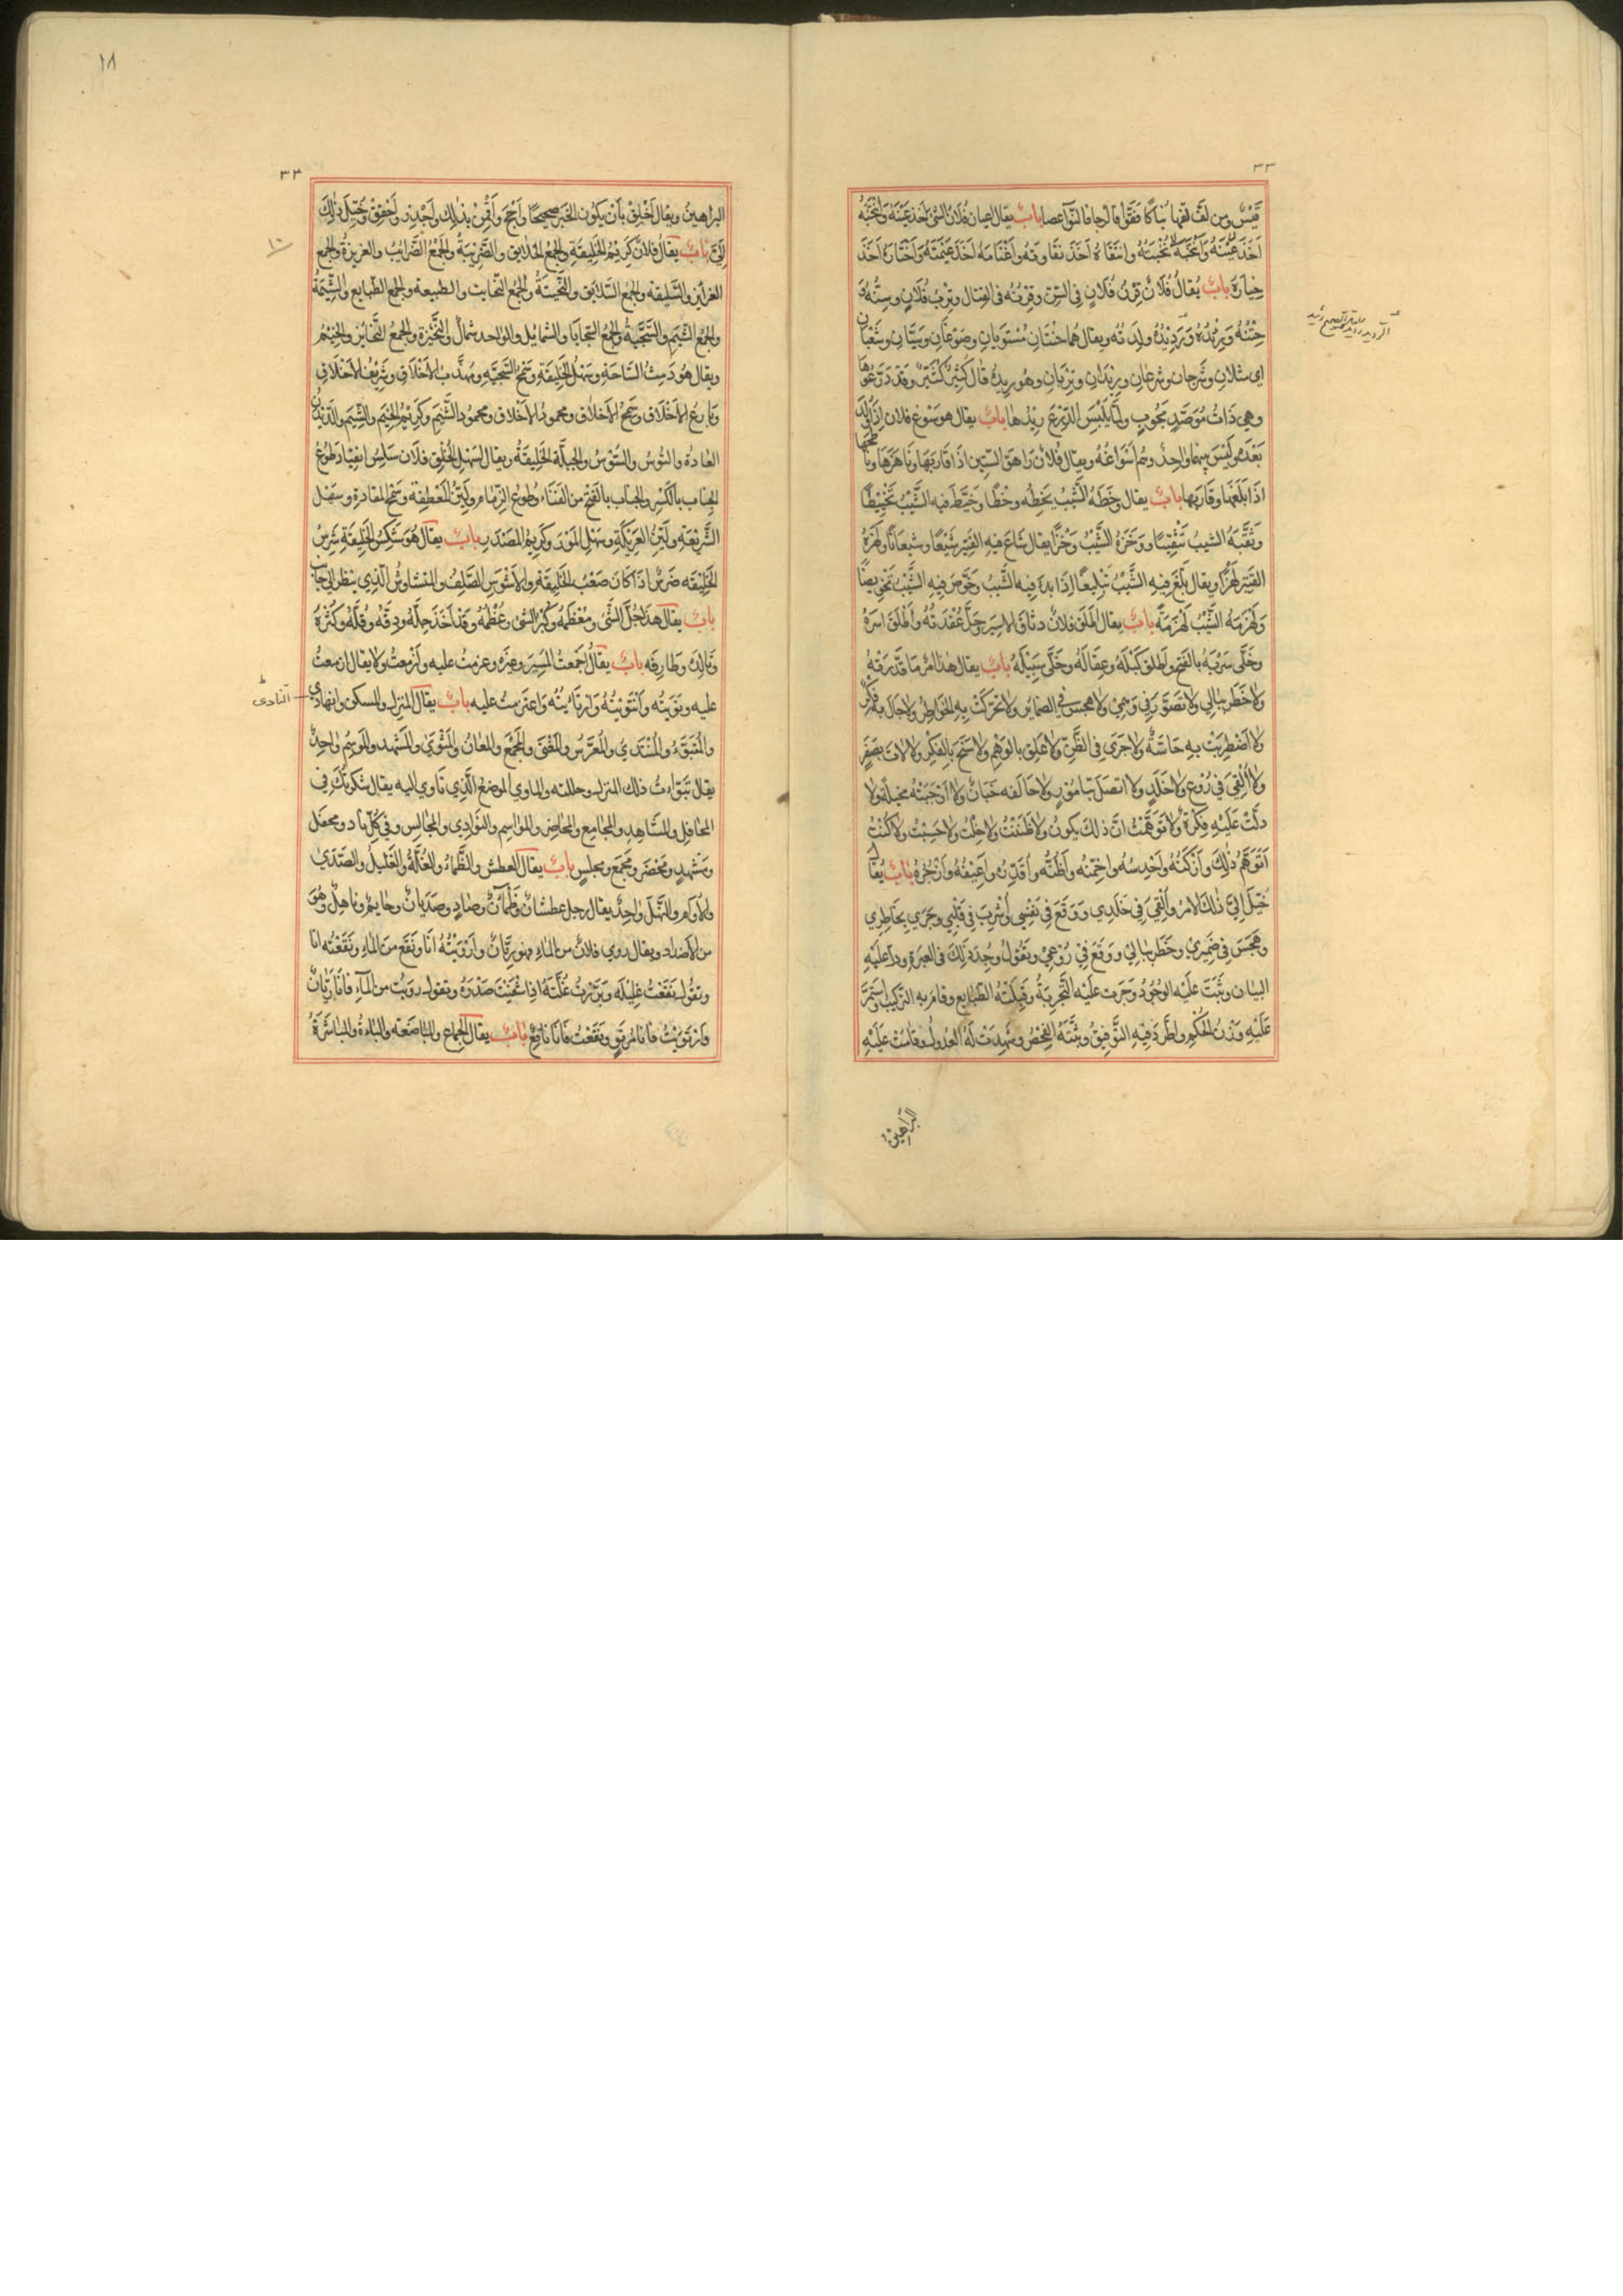 ٣٣
قَيْسٌ ومن لقّ لقها بناكا فقوا قا لوجا فا لنوا عصا بابٌ يقال اعيان فلان الشئ اخذ عينه وانتخبه
اخذ عينته وانتخبه نخبته وانتقاه اخذ نقاوته واغتامه اخذ عيمته واختاره اخذ
خياره بابٌ يُقالُ فُلَانٌ قِرْنُ فُلَانٍ في السّن وقِرْنه في القتال وتِرْبُ فُلَانٍ وسنّه و
حِتْنُهُ ورِئْدُه ورَدِيْدُه ولدته ويقال هما حتنان مستويان وصوغان وسيّان وشعبان
اي مثلان وشرجان وشرعان ورِيْدَان وتِرْبَان وهو رِيدُهُ قال كُثيّر وقد درّعوها
وهي ذاتُ مُوَصَّدٍ مَجُوبٍ ولمّا يَلْبَسِ الدِّرْعَ رِيْدُها بابٌ يقال هو سَوْغ فلان اذا وُلِدَ
بَعْدَه وليس بينهما واحدٌ وهم اسْوَاغُهُ ويقال فلان رَاهَقَ السّتين اذا قاربها وناهزها و
اذا بَلَغَها وقَارَبَها بابٌ يقال وخَطَهُ الشَّيْبُ يَخِطُه وخْطًا وخَيَّطَ فيه الشَّيْبُ تَخْيِيْطًا
وثَقَّبَهُ الشيبُ تَثْقِيْبًا ووَخَزَهُ الشَّيْبُ وَخْزًا يقال شَاعَ فيه القَتِيْر شَيْعًا وشيعانًا ولهزه
القَتِير لَهْزًا ويقال بَلَّغَ فِيْهِ الشَّيْبُ تَبْلِيغًا اذا بدا فيه الشَّيبُ وخَوَّصَ فيه الشَّيْبُ تَخْوِيصًا
ولَهْزَمَهُ الشَّيْبُ لَهْزَمَةً بابٌ يقال اطلق فلانٌ وثاق الاسير وحَلَّ عُقْدَتُه واطلق اسره
وخَلَّى سَرْبَهُ بالفتح واطلق كَبْلَهُ وعِقَالَهُ وخَلَّى سَبِيْلَهُ بابٌ يقال هذا امرٌ ما قدّرته
ولا خَطَر ببالي ولا تصوّر في وَهْمِيْ ولا هجس في الضمايِر ولا تحرّكَتْ بِهِ الخواطِرُ ولا جال به فِكْرٌ
ولا اضطربَتْ بِهِ حاسّةٌ ولا جرى في الظَّنّ ولا عَلِق بالوهم ولا سَنَحَ بالفِكْر ولا لاق بصَفَرٍ
ولا أُلْقِيَ في رُوْعٍ ولا خَلَدٍ ولا اتصَلَ بتامُوْرٍ ولا حالفه جَنَانٌ ولا اوجبتْه مخيلة ولا
دلّتْ عَلَيْهِ فِكْرَةٌ ولا توهَّمْتُ انّ ذلك يكون ولا ظننت ولا خِلْتُ ولا حسِبْتُ ولا كُنْتُ
اتوَهَّمُ ذٰلِكَ وأزْكَنُهُ وأحدِسُهُ واخمّنه وأظُنُّه واقدّره واَعِيْفُهُ وازجُرُه بابٌ يُقَالُ
خُيّلَ اِلَيَّ ذلك الامرُ واُلْقِيَ في خَلَدِي ووَقَعَ في نَفْسِي واُشْرِبَ في قلبي وجَرَى بخاطِرِي
وهَجَسَ في ضَمِيريْ وخَطَر ببالِيْ ووَقَعَ فِيْ رُوْعِيْ وتَقُوْلُ وُجِدَ ذلك في العِبرة ودل عليه
البيان وثَبَتَ عليه الوُجُوْدُ وجَرَت عليه التّجْرِبَةُ وقَبِلَتْهُ الطّبايع وقامَ به التركيبُ واستمرّ
عَلَيْهِ وَزْنُ الحُكْمِ واطّرَدَ فيه التَّوفِيقُ وبيّنَهُ الفحصُ وشَهِدَتْ لَهُ العُدولُ وقامت عَلَيْه
البراهينُ
١٨
٣٤
البراهينُ ويقال اَخْلِقْ بأنْ يكون الخبر صحيحًا واَحْجِ واَقْمِنْ بذلِك واَجْدِر واَحْقِقْ وخُيِّلَ ذلك
اِلَيَّ بابٌ يقالُ فلانٌ كريمُ الخَلِيقَةِ والجمع الخلايق والضَّرِيْبَةُ والجمْعُ الضَّرايِبُ والغريزةُ والجمع
الغرايز والسّليقه والجمعُ السّلايق والنَّحيتةُ والجمعُ النحايت والطبيعه والجمع الطبايع والشّيمة
والجمعُ الشِّيَم والسَّجيّةُ والجمع السّجايَا والشمايل والواحد شمالٌ والنَّحِيْزَة والجمعُ النَّحايزُ والخِيْمُ
ويقال هو دَمِثُ السّاحَة وسَهْلُ الخَلِيقَةِ وسَمْحُ السَّجيّه ومهَذَّب الاخلاق وشَرِيْفُ الاخلاق
وبارعُ الاخلاق وسَمْحُ الاخلاق ومحمودُ الاخلاق ومحمود الشِّيَم وكريْمُ الخِيَم والشِّيَم والدَّيْدَن
العادة والتُّوسُ والسُّوْسُ والجبلّة الخَلِيقةُ ويقال لسهل الخُلُق فلان سَلِسُ القِياد طَوْعُ
الجِناب بالكَسْر والجناب بالفَتْح من الفِنَاء وطوعُ الزِّمَام ولَيّنُ المَعْطِفَة وسَمْحُ المقادة وسَهْل
الشَّرِيْعَةِ ولَيّنُ العَرِيْكَةِ وسَهْلُ المَوْرد وكَرِيمُ المَصْدَرِ بابٌ يقالُ هُوَ شَكِسُ الخَلِيقَةِ شَرِسُ
الخَلِيْقَه ضَرِسٌ اذا كان صَعْبُ الخَلِيقَة والاَشْوَسُ الصَّلِفُ والمتشاوسُ الذي ينظر الى جانب
بابٌ يقال هذا جُلّ الشَّئ ومُعْظَمُه وكُبْر الشئ وعُظْمُه وقد اخَذَ جِلَّهُ ودِقَّهُ وقُلّهُ وكُثْرَهُ
وتالِدَه وطَارِفَه بابٌ يقالُ اجمعتُ المَسِيرَ وغيره وعزمتُ عليه وازمعتُ ولا يقال ازمعتُ
عليه ونَوَيْتُه وانْتَوَيْتُهُ وارْتَأَيْتُه واعتزمتُ عليه بابٌ يقال المنزل والمسكن والنهادي
النادى
والمُتَبَوَّءُ والمُنْتَدَى والمُعَرَّسُ والمَغْنَى والمَجْمَعُ والمعانُ والمَثْوَى والمشهد والموسِم واحدٌ
يقال تبوّاتُ ذلك المنزل وحللته والماوى الموضعُ الَّذِي تَاوِي اليه يقال شكرتُك في
المحافِل والمشَاهِد والمجامِع والمحاضِر والمواسِم والنَوادِي والمجالس وفي كلّ نادٍ ومحفل
ومَشهدٍ ومَحْضَر ومَجْمَع ومجلسٍ بابٌ يقال العطش والظّماءُ والغُلّةُ والغَليلُ والصَّدَى
والاُوَام والنَّهَلَ واحِدٌ يقال رجل عطشانُ وظَمْآنُ وصَادٍ وصَدْيَانُ وحايمٌ وناهِلٌ وهُوَ
من الاَضداد ويقال رَوِيَ فلانٌ من الماءِ فهو رَيّانُ واَرْوَيْتُهُ انَا ونَقَعَ مِنَ الماءِ ونَقَعْتُه انا
وتقُولُ نَقَعْتُ غلِيْلَه وبَرَّدْتُ غُلّتَهُ اذا شفَيْتَ صَدْرَهُ وتقول رويت من المآء فانا ريّانُ
وارْتَوَيْتُ فانا مُرْتَوٍ ونَقَعْتُ فَانَا نَاقِعٌ بابٌ يقال الجماع والمباضَعَه والباءةُ والمباشَرَةُ